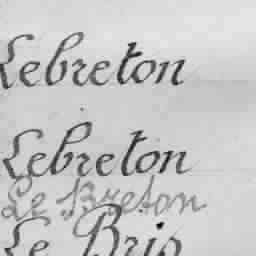 Lebreton
Lebreton
Le Breton
Le Bris